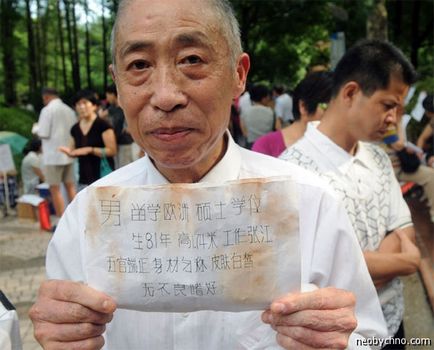 男 留学欧洲 硕士学位
生81年 高1.74米 工作张江
五官端正 身材匀称 皮肤白皙
无不良嗜好
neobychno.com